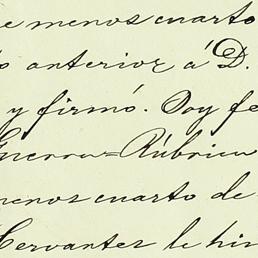 e menos cuarto
o anterior á D.
y firmó. Doy fe
Guerra=Rúbrica
menos cuarto de
Cervantes le hi